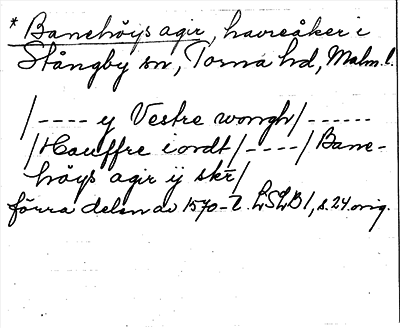 * Banehöys agir, havreåker i
Stångby sn, Torna hd, Malm. l.
/---- y Vestre wongh/------
/Hauffre iordt/----/Bane-
höys agir ij skr/
förra delen av 1570-t. LSLB 1, s. 24 orig.